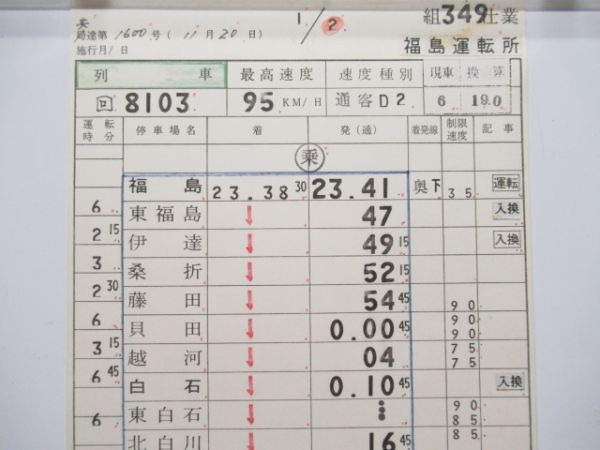 安
局達第1600号(11月20日)
施行月/日
1/2
組349仕業
福島運転所
列車 最高速度 速度種別 現車 換算
回 8103 95 KM/H 通客D2 6 19.0
運転時分 停車場名 着 発(通) 着発線 制限速度 記事
乗
福島 23.38 30 23.41 奥下 35 運転
6
東福島 ↓ 47 入換
2 15
伊達 ↓ 49 15 入換
3
桑折 ↓ 52 15
2 30
藤田 ↓ 54 45 90
6 90
貝田 ↓ 0.00 45 90
3 15 75
越河 ↓ 04 75
6 45
白石 ↓ 0.10 45 入換
東白石 ↓ 90
6 85
北白川 16 45 85